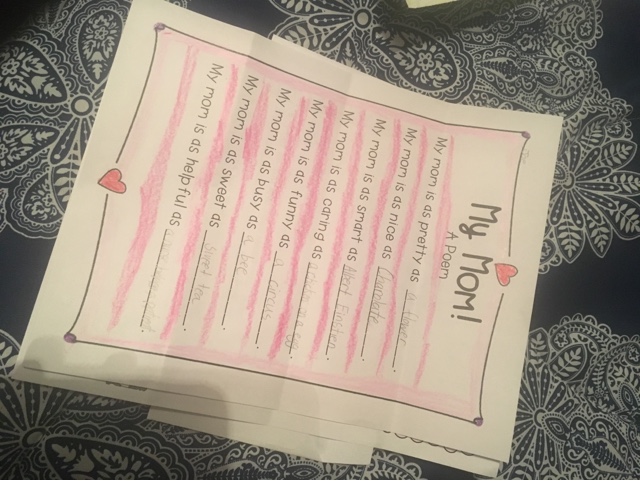 My Mom!
A Poem
My mom is as pretty as a flower.
My mom is as nice as Charlotte.
My mom is as smart as Albert Einsten.
My mom is as caring as
My mom is as funny as a circus.
My mom is as busy as a bee.
My mom is as sweet as sweet tea.
My mom is as helpful as